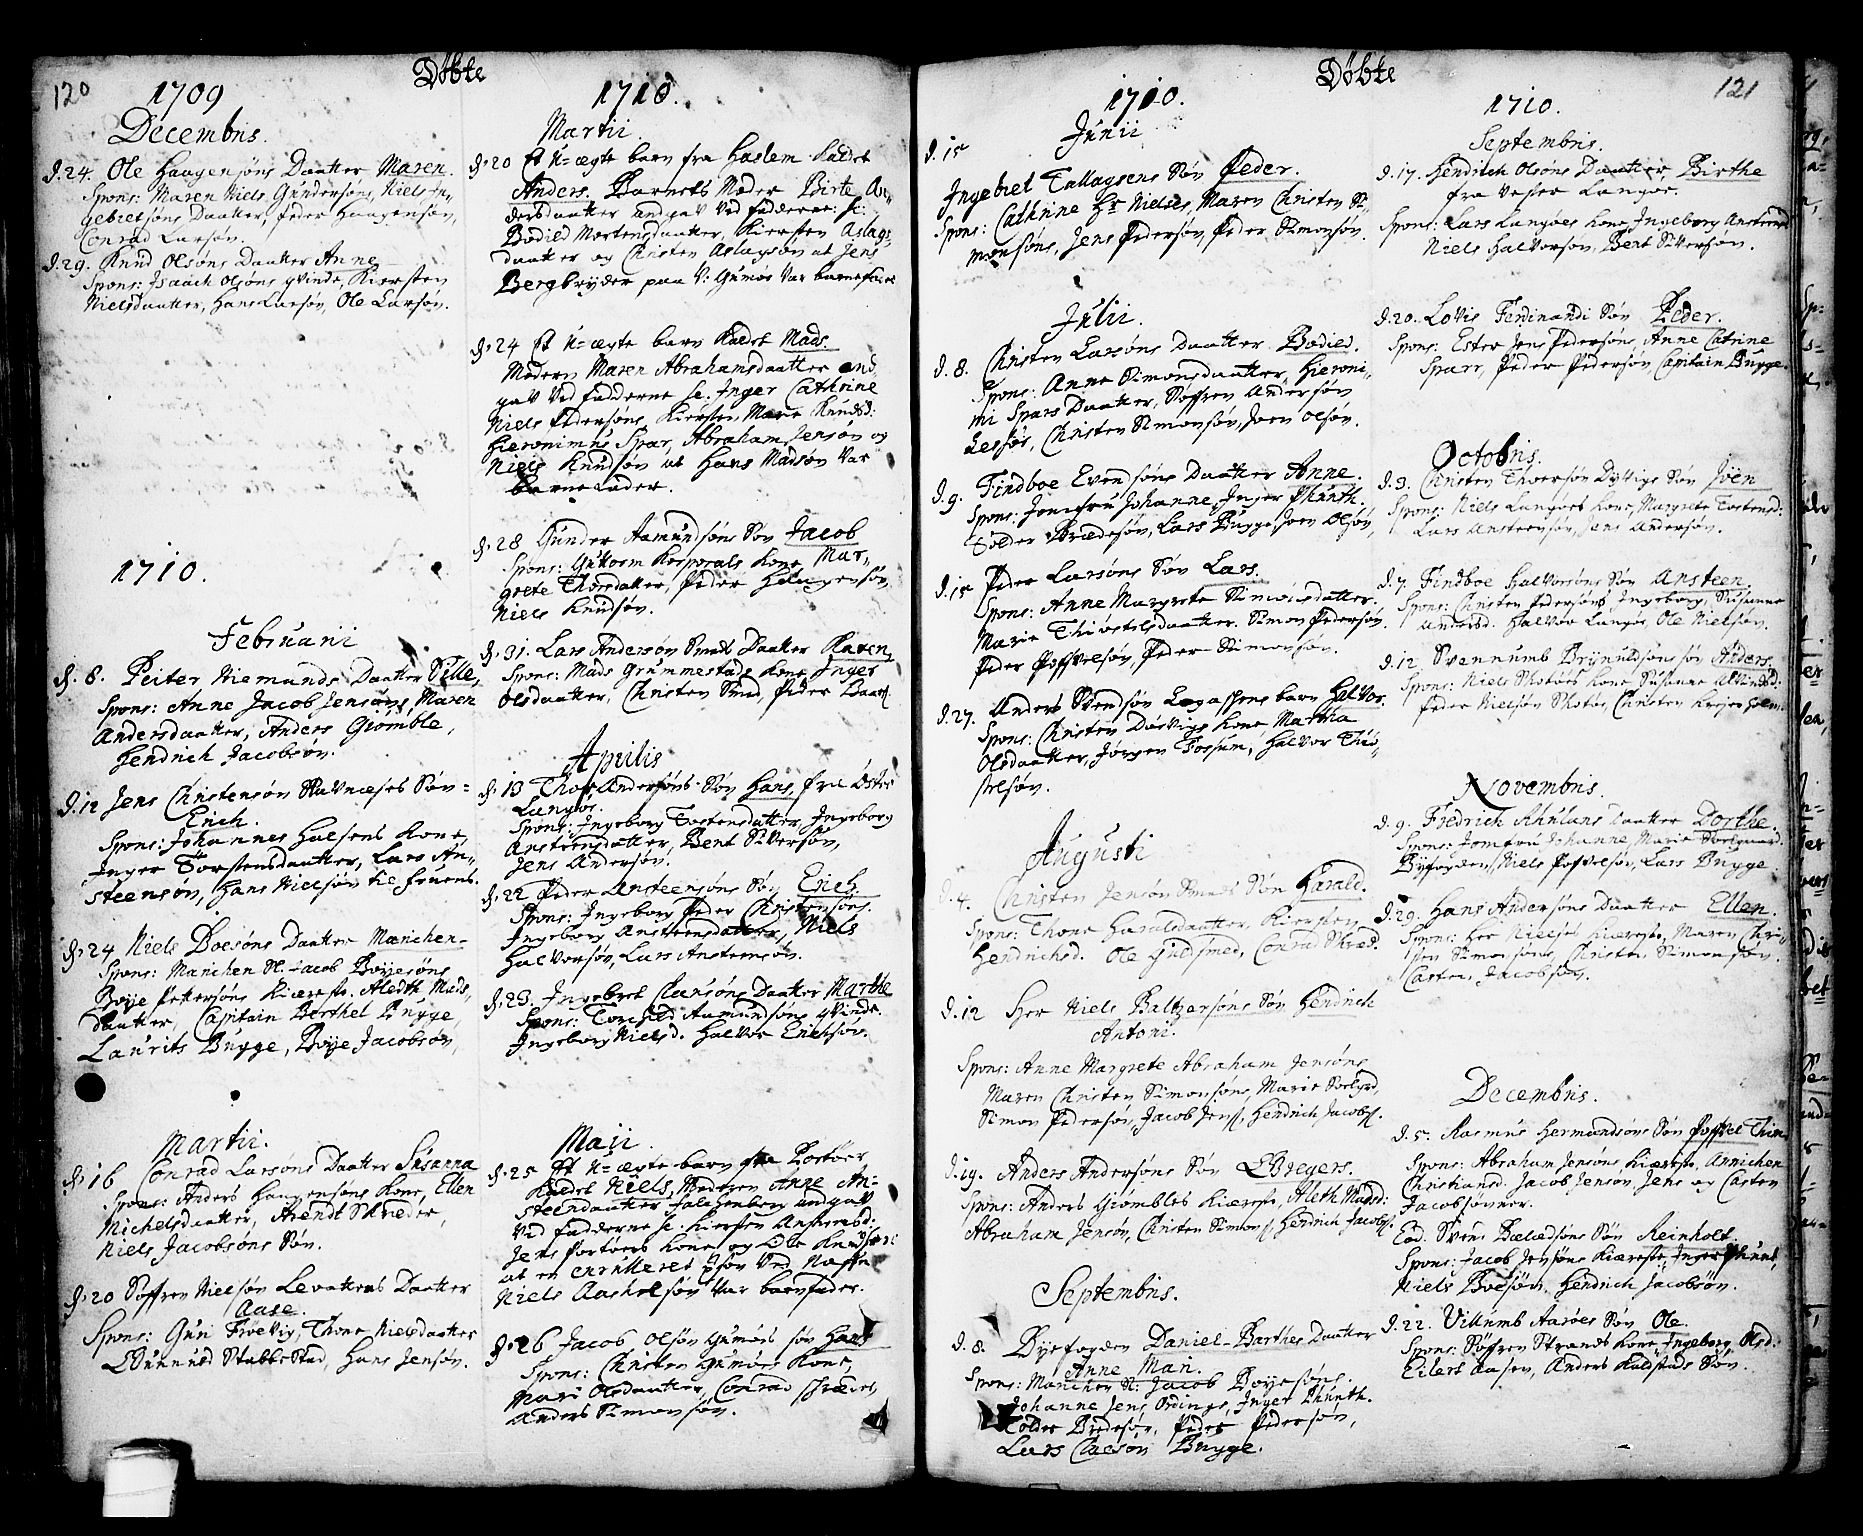 120
Døbte
1709
Decembris.
d. 24. Ole Haagensøns Daatter Maren.
Spons: Maren Niels Gundersøns, Niels In,,
gebretsøns Daatter, Peder Haagensøn,
Conrad Larsøn.
d. 29. Knud Olsøns Daatter Anne
Spons: Isaach Olsøns qvinde, Kiersten
Nielsdaatter, Hans Larsøn, Ole Larsøn.
1710.
Februarii
d. 8. Peiter Niemands Daatter Sille,
Spons: Anne Jacob Jensøns, Maren
Andersdaatter, Anders Giømble,
Hendrich Jacobsøn.
d. 12 Jens Christensøn Stavnæses Søn
Erich.
Spons: Johannes Halsens Kone,
Inger Torstensdaatter, Lars An,,
steensøn, Hans Nielsøn til fruens.
d. 24 Niels Boesøns Daatter Marichen
Spons: Marichen Sl. Jacob Boyesøns
Boye Pettersøns Kiæreste. Aledth Mads,,
daatter, Capitain Berthel Bugge,
Laurits Bugge, Boye Jacobsøn,
Martii.
d. 16 Conrad Larsøns Daatter Susanna
Spons: Anders Haagensøns Kone, Ellen
Michelsdaatter, Arendt Skreder,
Niels Jacobsøns Søn.
d. 20 Søffren Nielsøn Levattens Daatter
Aase.
Spons: Guri Frøevig, Thone Nielsdaatter
Stabbestad, Hans Jensøn.
1710.
Martii
d. 20 Et U=ægte barn fra Haslem Kaldet
Anders. Barnets Moder Birte An,,
dersdaatter angav ved fadderne: sc:
Bodild Mortensdaatter, Kiersten Aslags,,
daatter og Christen Aslagsøn at Jens
Bergbryder paa V: Gumøe var barnefader
d. 24 Et U=ægte barn Kaldet Mads.
Modern Maren Abrahamsdaatter and,,
gav ved fadderne sc. Inger Cathrine
Niels Pedersøns, Kiersten, Marie Knudsd:
Hieronimus Spar, Abraham Jensøn og
Niels Knudsøn at Hans Madsøn var
barnefader.
d. 28 Gunder Aamundsøns Søn Jacob
Spons: Guttorm Korporals Kone, Mar,,
grete Thorsdatter, Peder Haagensøn,
Niels Knudsøn.
d. 31. Lars Andersøn Smeds Daatter Karen
Spons: Mads Grummestads Kone, Inger
Olsdaatter, Christen Smed, Peder
Aprilis
d. 13 Thor Andersøns Søn Hans, fra Øster
Langøe.
Spons: Ingeborg Tostensdatter, Ingeborg
Ansteensdatter, Bent Siversøn,
Jens Andersøn.
d. 22 Peder Ansteensøns Søn Erich.
Spons: Ingeborg Peder Christensøns.
Ingeborg Ansteensdatter, Niels
Halvorsøn, Lars Ansteensøn.
d. 23. Ingebret Clausøns Daatter Marthe
Spons: Torchild Aamundsøns qvinde.
Ingeborg Nielsd. Halvor Erichsøn.
Maii.
d. 25 Et U=ægte barn fra Portøer
Kaldet Niels, Moderen Anne An,,
steensdaatter angav
ved fadderne sc. Kiersten Ansteensd:
Jens Portøers Kone og Ole Knudsøn:
at en enrulleret ved Naffn
Niels var barnfader.
d. 26 Jacob Olsøn Gumøes søn Hans
Spons: Christen Gumøes Kone,
Mari Olsdaatter, Conrad Schræder,
Anders Simonsøn.
121
Døbte
1710.
Junii
d. 15
Ingebret Tallagsens Søn Peder.
Spons: Cathrine Hr. Nielses, Maren Christen Si,,
monsøns, Jens Pedersøn, Peder Simonsøn.
Julii.
d. 8. Christen Larsøns Daatter Bodild.
Spons: Anne Simonsdaatter, Hieroni,,
mi Spars Daatter, Søffren Andersøn
Christen Simonsøn, Joen Olsøn.
d. 9. Findboe Evensøns Daatter Anne.
Spons: Jomfru Johanne, Inger Munth.
Tolder Brædesøn, Lars Bugge, Joen Olsøn,
d. 15 Peder Larsøns Søn Lars.
Spons: Anne Margrete Simonsdaatter.
Marie Thiøstelsdaatter. Simon Pedersøn.
Peder Poffvelsøn, Peder Simonsøn.
d. 27. Anders Svendsøn barn Halvor.
Spons: Christen Kone Martha
Olsdaatter, Jørgen Fossum, Halvor Thiø,,
stelsøn.
Augusti
d. 4. Christen Jensøn Smeds Søn Harald.
Spons: Thone Haraldsdaatter, Kiersten
Hendrichsd. Ole Guldsmed, Conrad Skræd.
d. 12 Her Niels Baltzersøns Søn Hendrich
Antoni.
Spons: Anne Margrete Abraham Jensøns,
Maren Christen Simonsøns, Marie
Simon Pedersøn, Jacob Jens, Hendrich Jacobs.
d. 19. Anders Andersøns Søn
Spons: Anders Giømbles Kiæreste, Aleth Madsd:
Abraham Jensøn, Christen Simons, Hendrich Jacobs.
Septembris.
d. 8. Byefogden Daniel Barthes Daatter
Anne Mari.
Spons: Marichen Sl: Jacob Boyesøns.
Johanne Jens Ordings, Inger Munth.
Tolder Bredesøn, Peder Pedersøn,
Lars Claesøn Bugge.
1710.
Septembris.
d. 17. Hendrich Olsøns Daatter Birthe
fra Vester Langøe.
Spons: Lars Langøes Kone, Ingeborg Ansteensd
Niels Halvorsøn, Bent Siversøn.
d. 20. Lovis Ferdinandi Søn Peder.
Spons: Ester Jens Pedersøns, Anne Catrine
Sparr, Peder Pedersøn, Capitain Bugge.
Octobris.
d. 3. Christen Thorsøn Søn Joen
Spons: Niels Langøes Kone, Margrete Tostensd:
Lars Ansteensøn, Jens Andersøn.
d. 7. Findboe Halvorsøns Søn Ansteen.
Spons: Christen Pedersøns Ingeborg, Susanne
Andersd. Halvor Langøe, Ole Nielsøn.
d. 12 Svennumb Brynildsøns søn Anders.
Spons: Niels Skotøes Kone Susanne
Peder Nielsøn Skotøe, Christen
Novembris.
d. 9. Fredrich Daatter Dorthe.
Spons: Jomfru Johanne, Marie
Byfogden, Niels Poffvelsøn, Lars Bugge
d. 29. Hans Andersøns Daatter Ellen.
Spons: Her Nielses Kiæreste, Maren Chri,,
sten Simonsøns, Christen Simonsøn.
Casten Jacobsøn.
Decembris.
d. 5. Rasmus Hermandsøns Søn
Spons: Abraham Jensøns, Kiæreste, Annichen
Christiansd. Jacob Jensøn, Jens og Casten
Jacobsønner.
Eod. Svend Søn Reinholt.
Spons: Jacob Jensøns Kiæreste, Inger Munth,
Niels Boesøn, Hendrich Jacobsøn.
d. 22. Villumb Aarøes Søn Ole.
Spons: Søffren Strands Kone, Ingeborg Olsd:
Eilert Aasen, Anders Kalstads Søn.